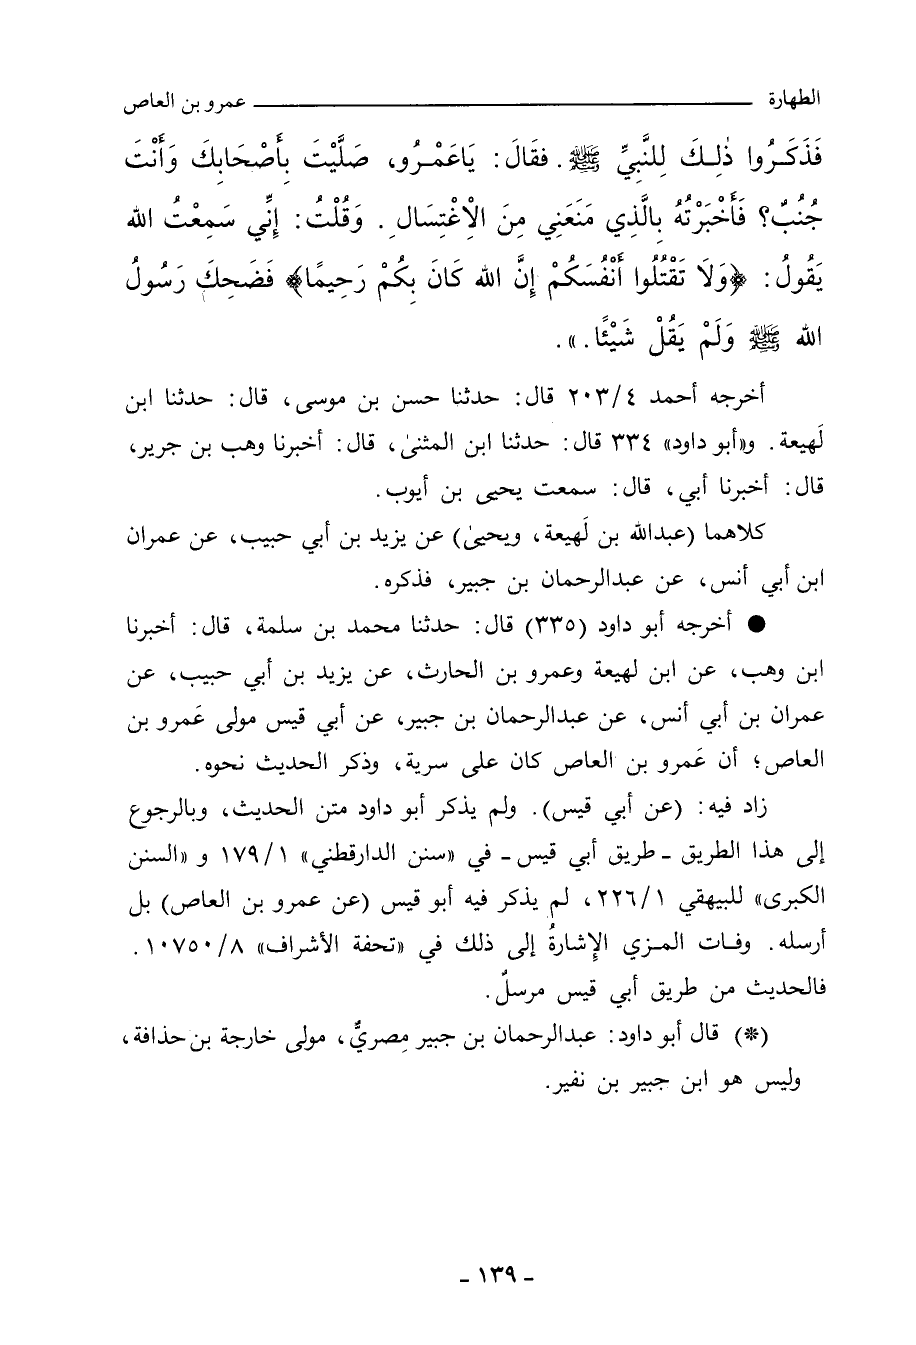 الطهارة ــــــــــــــ عمرو بن العاص
فَذَكَـرُوا ذٰلِـكَ لِلنَّبِيِّ ﷺ. فقَالَ: يَاعَمْـرُو، صَلَّيْتَ بِأَصْحَابِكَ وَأَنْتَ
جُنُبٌ؟ فَأَخْبَرْتُهُ بِالَّذِي مَنَعَنِي مِنَ الْاِغْتِسَالِ. وَقُلْتُ: إِنِّي سَمِعْتُ الله
يَقُولُ: ﴿وَلَا تَقْتُلُوا أَنْفُسَكُمْ إِنَّ الله كَانَ بِكُمْ رَحِيمًا﴾ فَضَحِكَ رَسُولُ
الله ﷺ وَلَمْ يَقُلْ شَيْئًا.».
أخرجه أحمد ٢٠٣/٤ قال: حدثنا حسن بن موسى، قال: حدثنا ابن
لَهيعة. و«أبو داود» ٣٣٤ قال: حدثنا ابن المثنىٰ، قال: أخبرنا وهب بن جرير،
قال: أخبرنا أبي، قال: سمعت يحيى بن أيوب.
كلاهما (عبدالله بن لَهيعة، ويحيىٰ) عن يزيد بن أبي حبيب، عن عمران
ابن أبي أنس، عن عبدالرحمان بن جبير، فذكره.
● أخرجه أبو داود (٣٣٥) قال: حدثنا محمد بن سلمة، قال: أخبرنا
ابن وهب، عن ابن لهيعة وعمرو بن الحارث، عن يزيد بن أبي حبيب، عن
عمران بن أبي أنس، عن عبدالرحمان بن جبير، عن أبي قيس مولى عَمرو بن
العاص؛ أن عَمرو بن العاص كان على سرية، وذكر الحديث نحوه.
زاد فيه: (عن أبي قيس). ولم يذكر أبو داود متن الحديث، وبالرجوع
إلى هذا الطريق ـ طريق أبي قيس ـ في «سنن الدارقطني» ١٧٩/١ و «السنن
الكبرى» للبيهقي ٢٢٦/١، لم يذكر فيه أبو قيس (عن عمرو بن العاص) بل
أرسله. وفـات المـزي الإشارةُ إلى ذلك في «تحفة الأشراف» ١٠٧٥٠/٨.
فالحديث من طريق أبي قيس مرسلٌ.
(*) قال أبو داود: عبدالرحمان بن جبير مِصريٌّ، مولى خارجة بن حذافة،
وليس هو ابن جبير بن نفير.
ـ ١٣٩ ـ